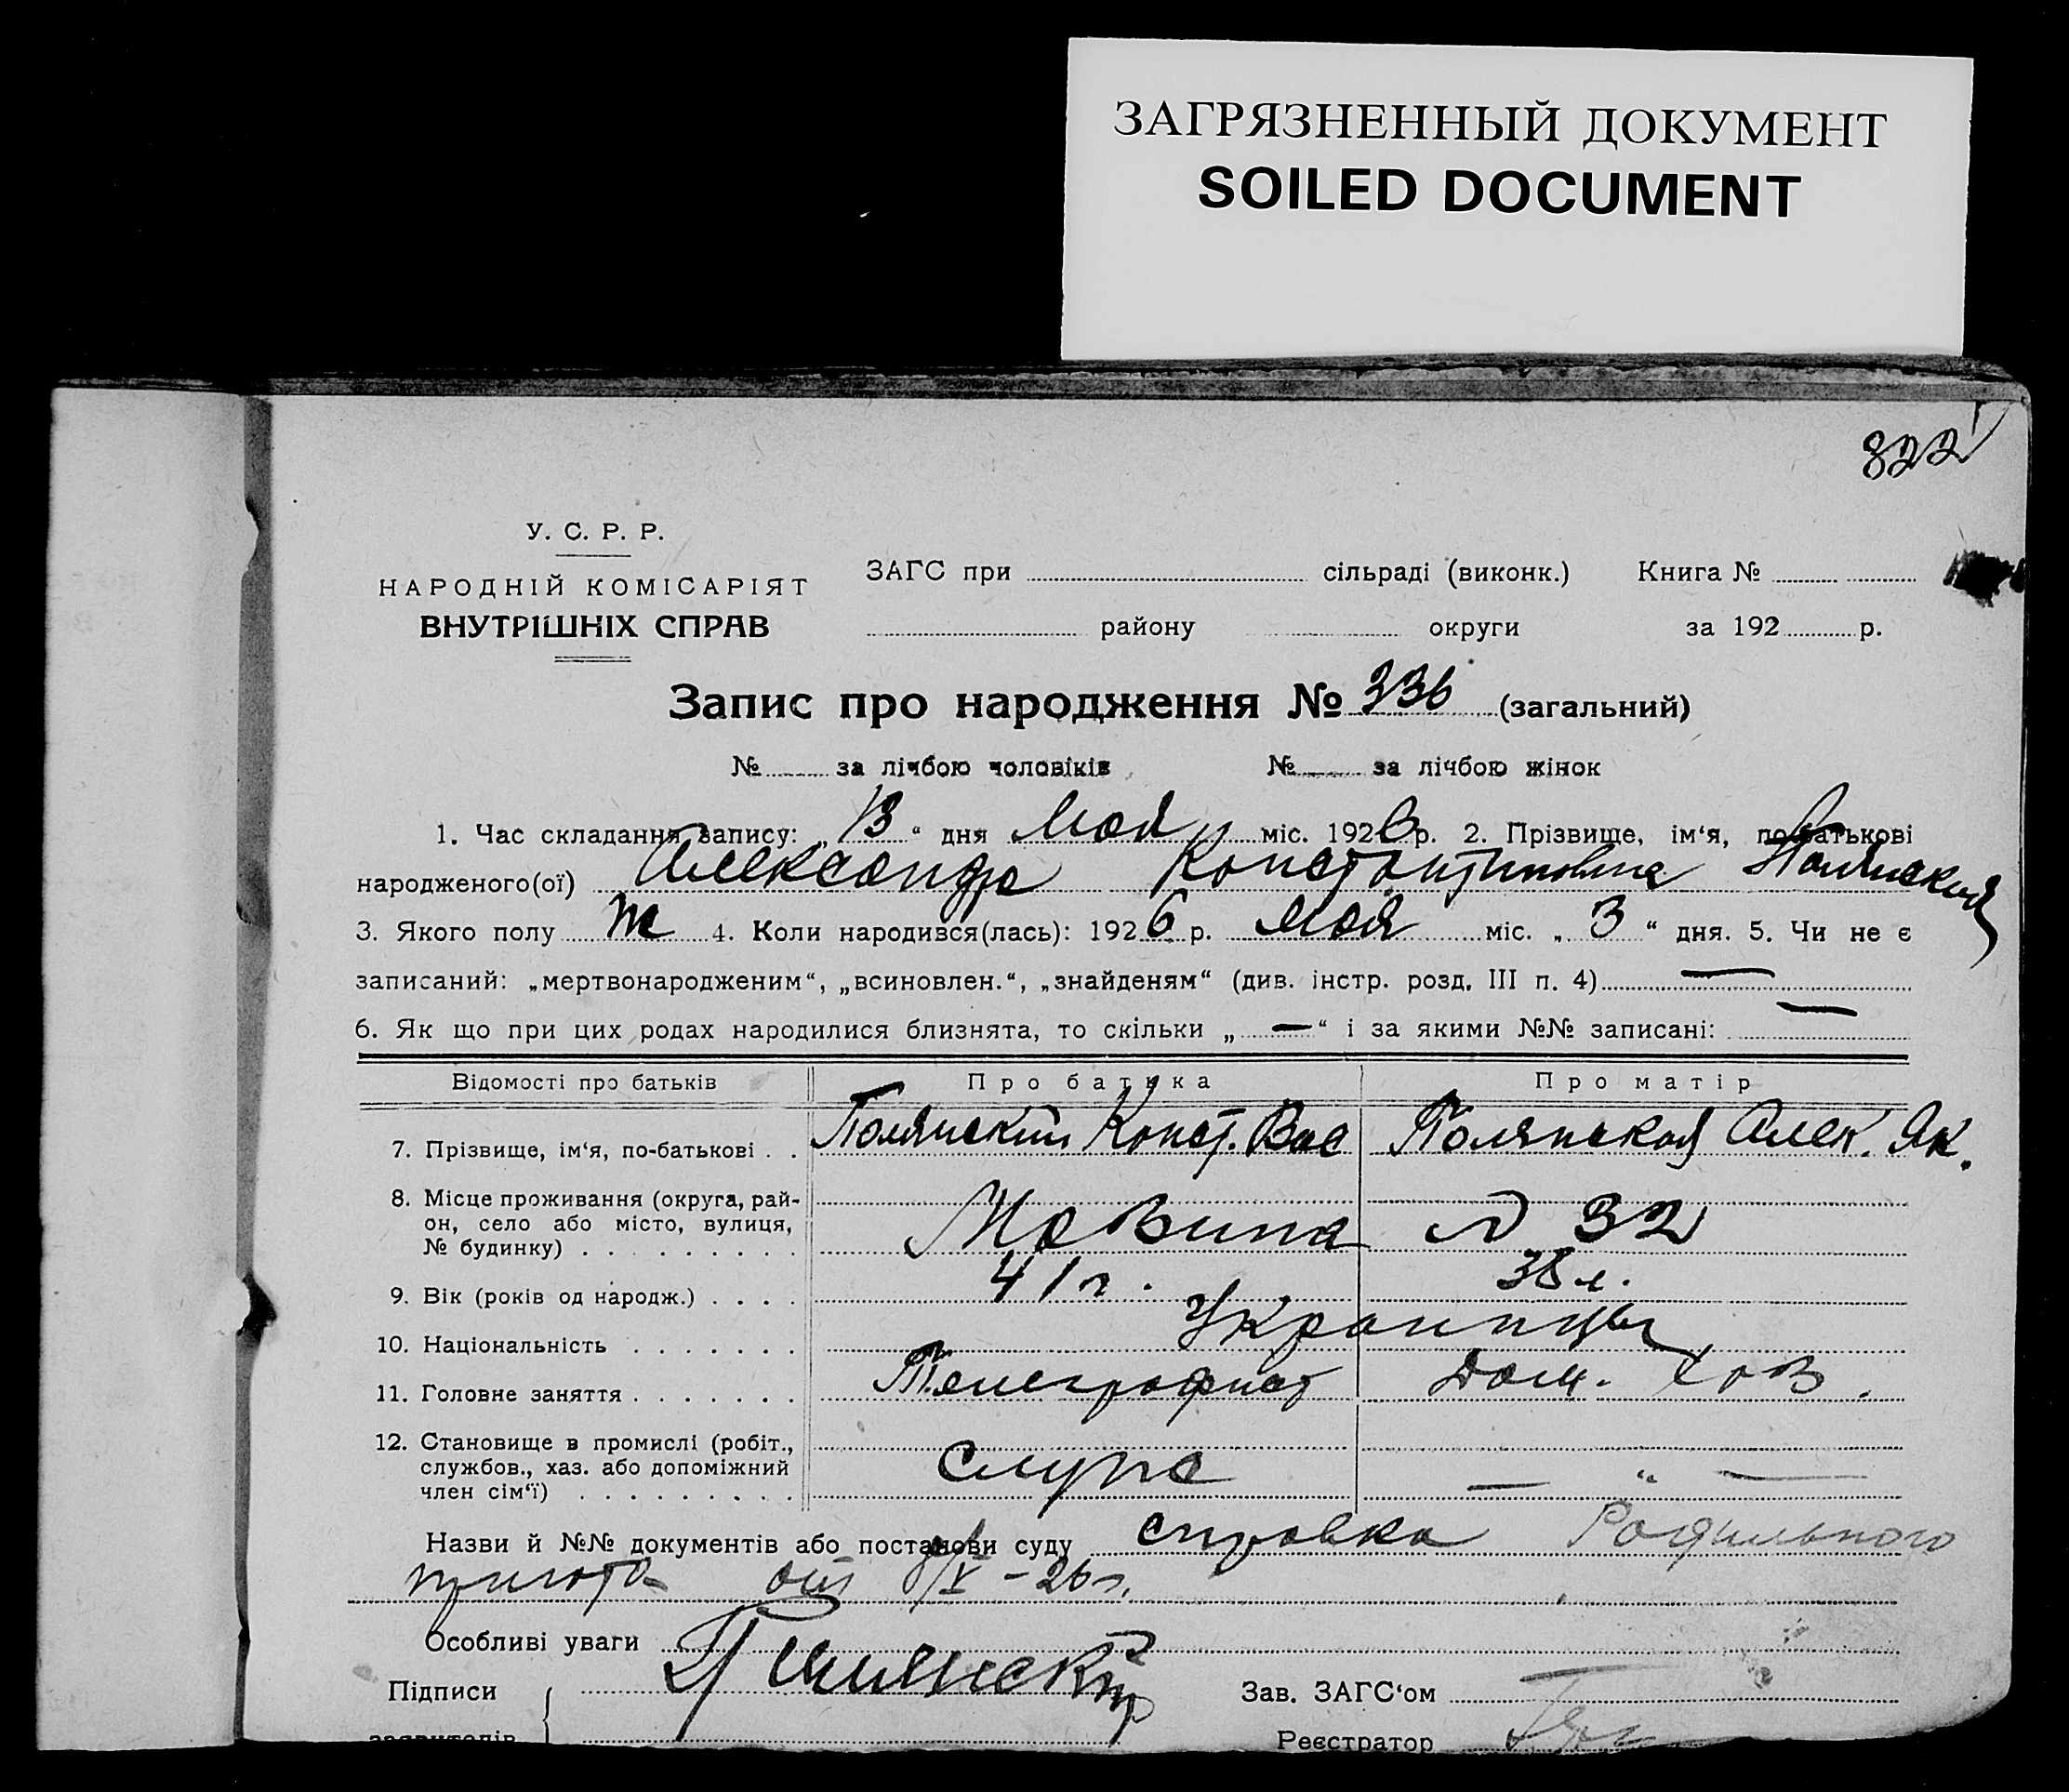 ЗАГРЯЗНЕННЫЙ ДОКУМЕНТ
SOILED DOCUMENT
822
У. С. Р. Р.
НАРОДНІЙ КОМІСАРІЯТ
ВНУТРІШНІХ СПРАВ
ЗАГС при сільраді (виконк.) Книга №
району округи за 192 р.
Запис про народження № 336 (загальний)
№ за лічбою чоловіків № за лічбою жінок
1. Час складання запису: „ 13 “ дня Мая міс. 1926 р. 2. Прізвище, ім‘я, по батькові
народженого(ої) Александра Константиновна Полянская
3. Якого полу ж 4. Коли народився(лась): 1926 р. Мая міс. „ 3 “ дня. 5. Чи не є
записаний: „мертвонародженим“, „всиновлен.“, „знайденям“ (див. інстр. розд. III п. 4) —
6. Як що при цих родах народилися близнята, то скільки „ — “ і за якими №№ записані: —
Відомості про батьків Про батька Про матір
7. Прізвище, ім‘я, по-батькові . . Полянский Конст. Вас Полянская Алек. Як.
8. Місце проживання (округа, рай-
он, село або місто, вулиця,
№ будинку) . . . . . . . . . 32
9. Вік (років од народж.) . . . . 41 г. 38 л.
10. Національність . . . . . . . Украинцы
11. Головне заняття . . . . . . . Телеграфист Дом. хоз.
12. Становище в промислі (робіт.,
службов., хаз. або допоміжний
член сім‘ї) . . . . . . . . . — “ —
Назви й №№ документів або постанови суду справка Родильного
приюта от 8/V – 26 г.
Особливі уваги
Підписи Полянский Зав. ЗАГС‘ом
заявителів Реєстратор